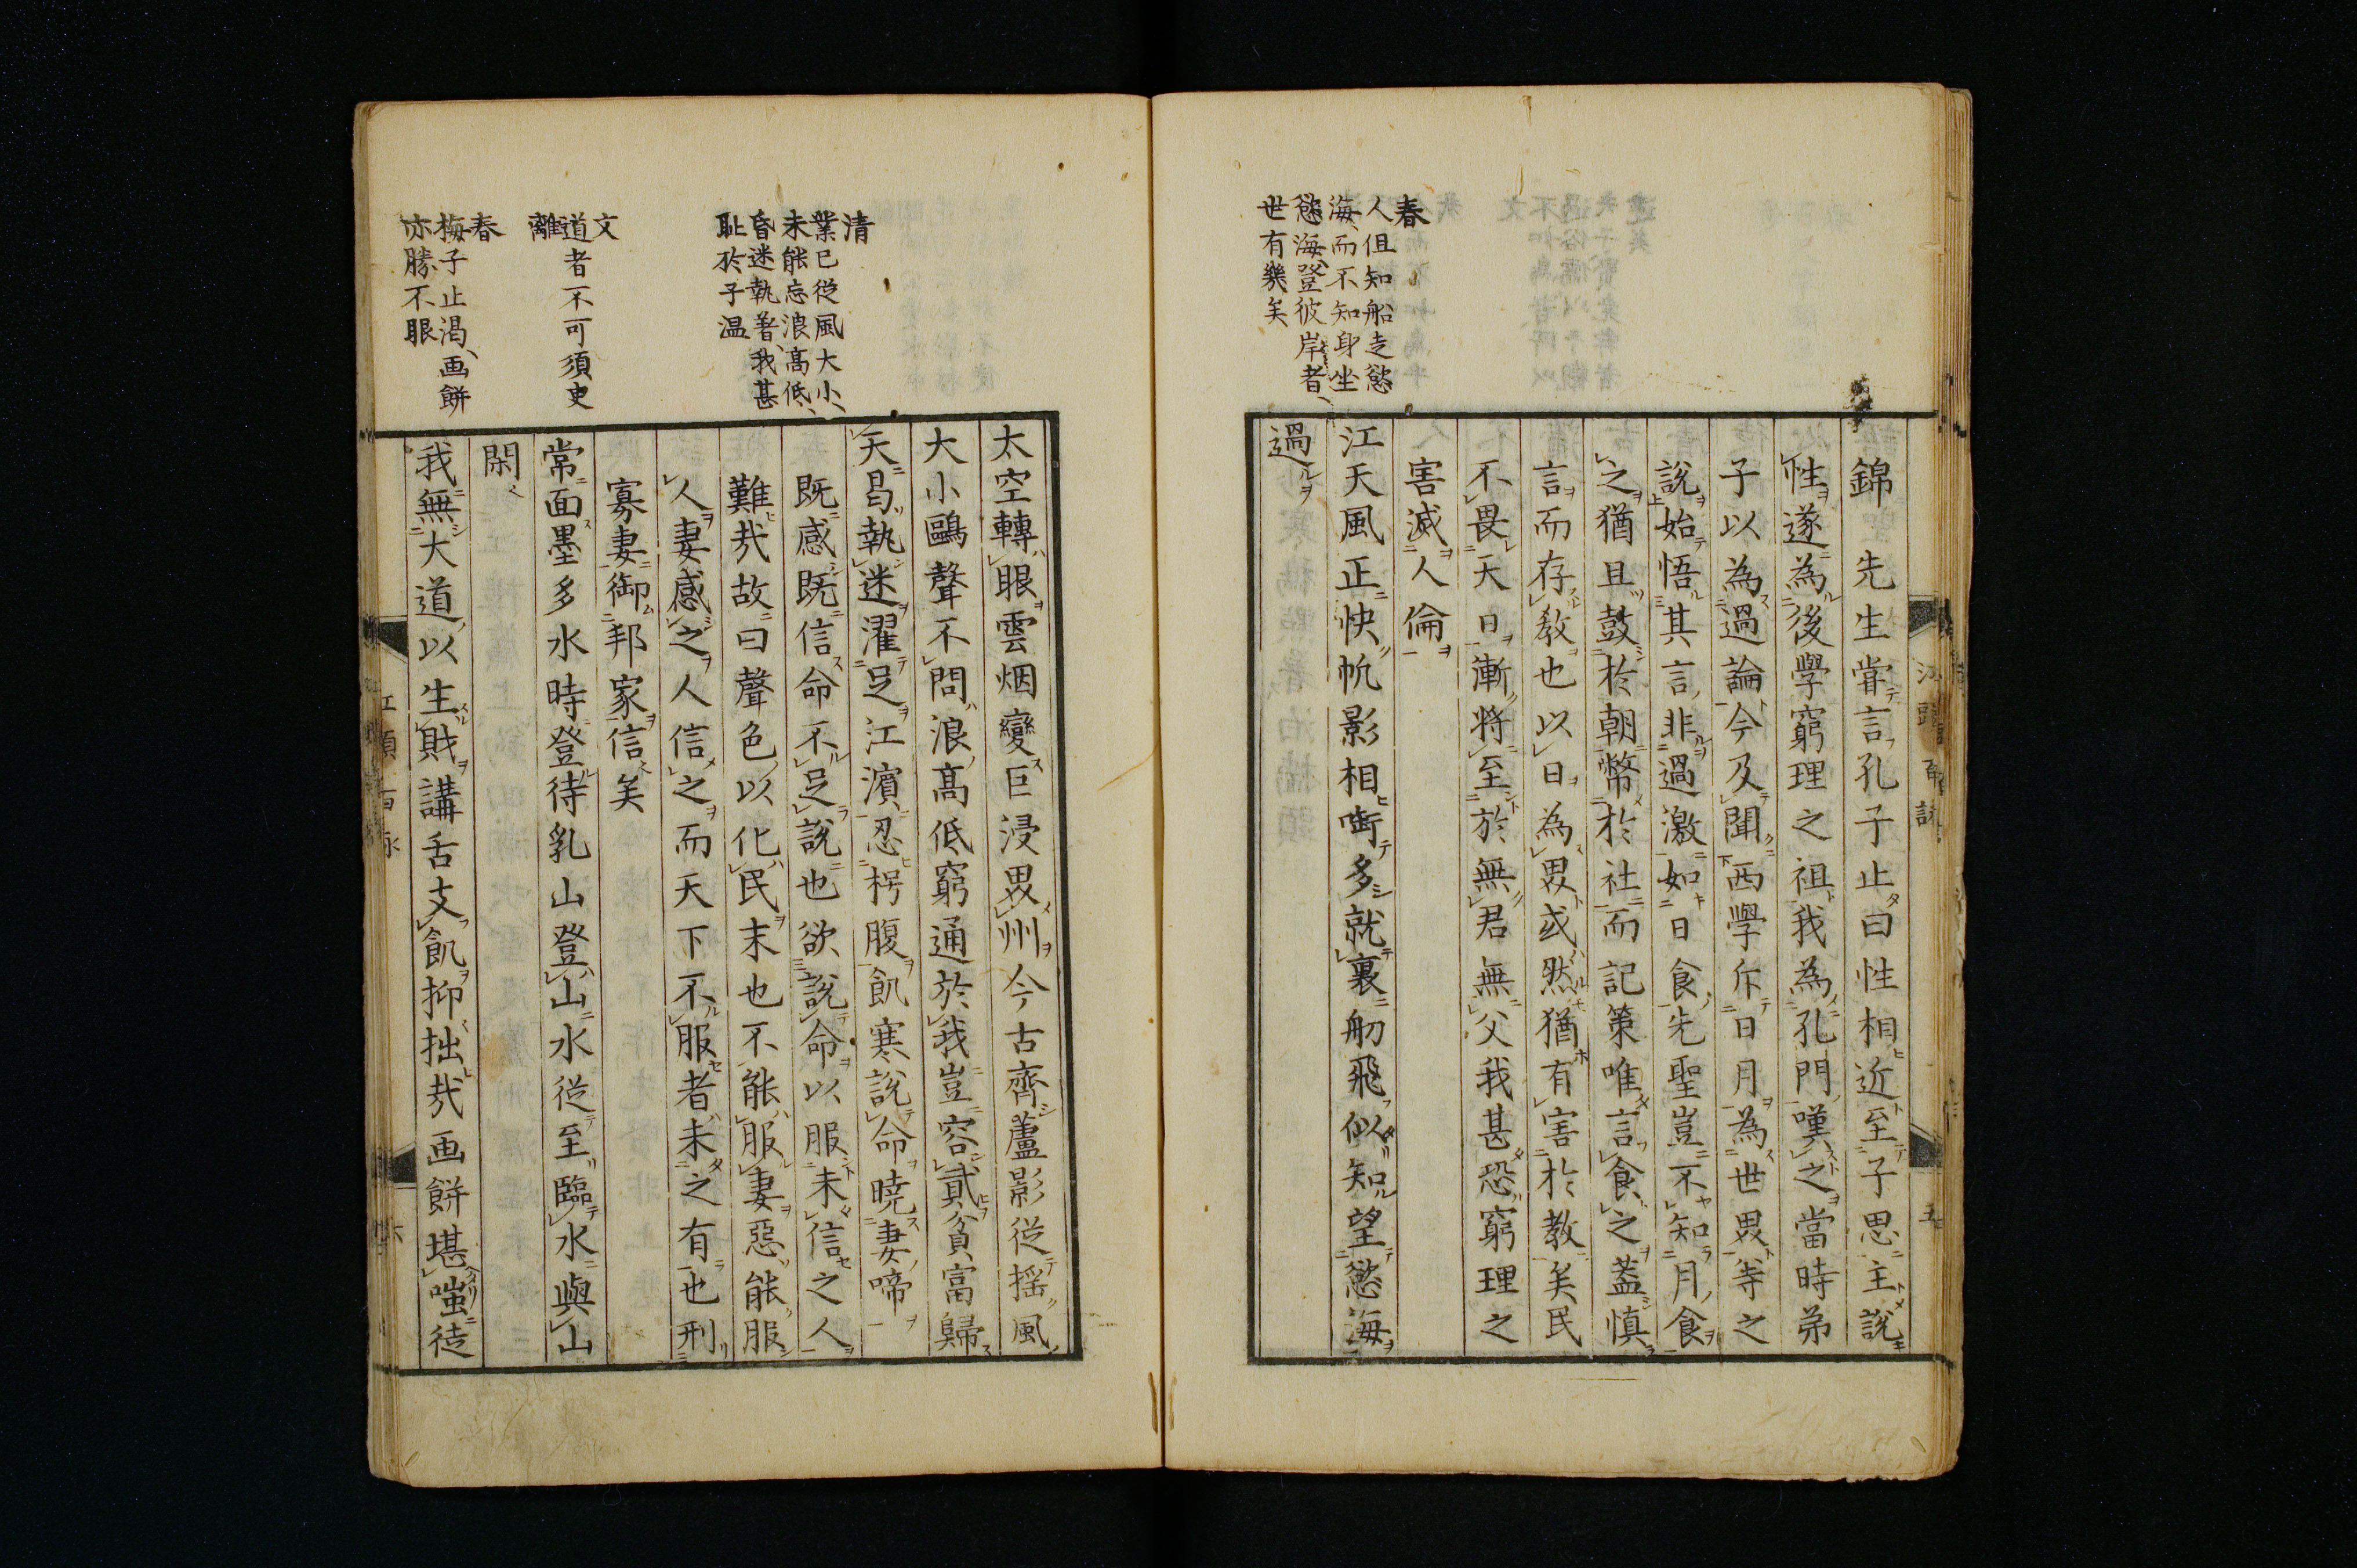 春
人但知船走慾
海、而不知身坐
慾海、登彼岸者、
世有幾矣
錦先生甞言孔子止曰性相近至子思主說
性遂為後學窮理之祖我為孔門嘆之當時弟
子以為過論今及聞西學斥日月為世畏等之
說始悟其言非過激如日食先聖豈不知月食
之猶且鼓於朝幣於社而記策唯言食之蓋慎
言而存教也以日為畏或然猶有害於教矣民
不畏天日漸將至於無君無父我甚恐窮理之
害滅人倫
江天風正快帆影相啣多就裏舠飛似知望慾海
過
清
業已從風大小、
未能忘浪高低、
昏迷執著、我甚
耻於子温
文
道者不可須臾
離
春
梅子止渇、画餅
亦勝不眼
太空轉眼雲烟變巨浸畏州今古齊蘆影從揺風
大小鷗聲不問浪高低窮通於我豈容貳貧富歸
天曷執迷濯足江濵忍枵腹飢寒說命曉妻啼
既感既信命不足說也欲說命以服未信之人
難哉故曰聲色以化民末也不能服妻惡能服
人妻感之人信之而天下不服者未之有也刑
寡妻御邦家信矣
常面墨多水時登待乳山登山水從至臨水與山
閑
我無大道以生財講舌支飢抑拙哉画餅堪嗤徒